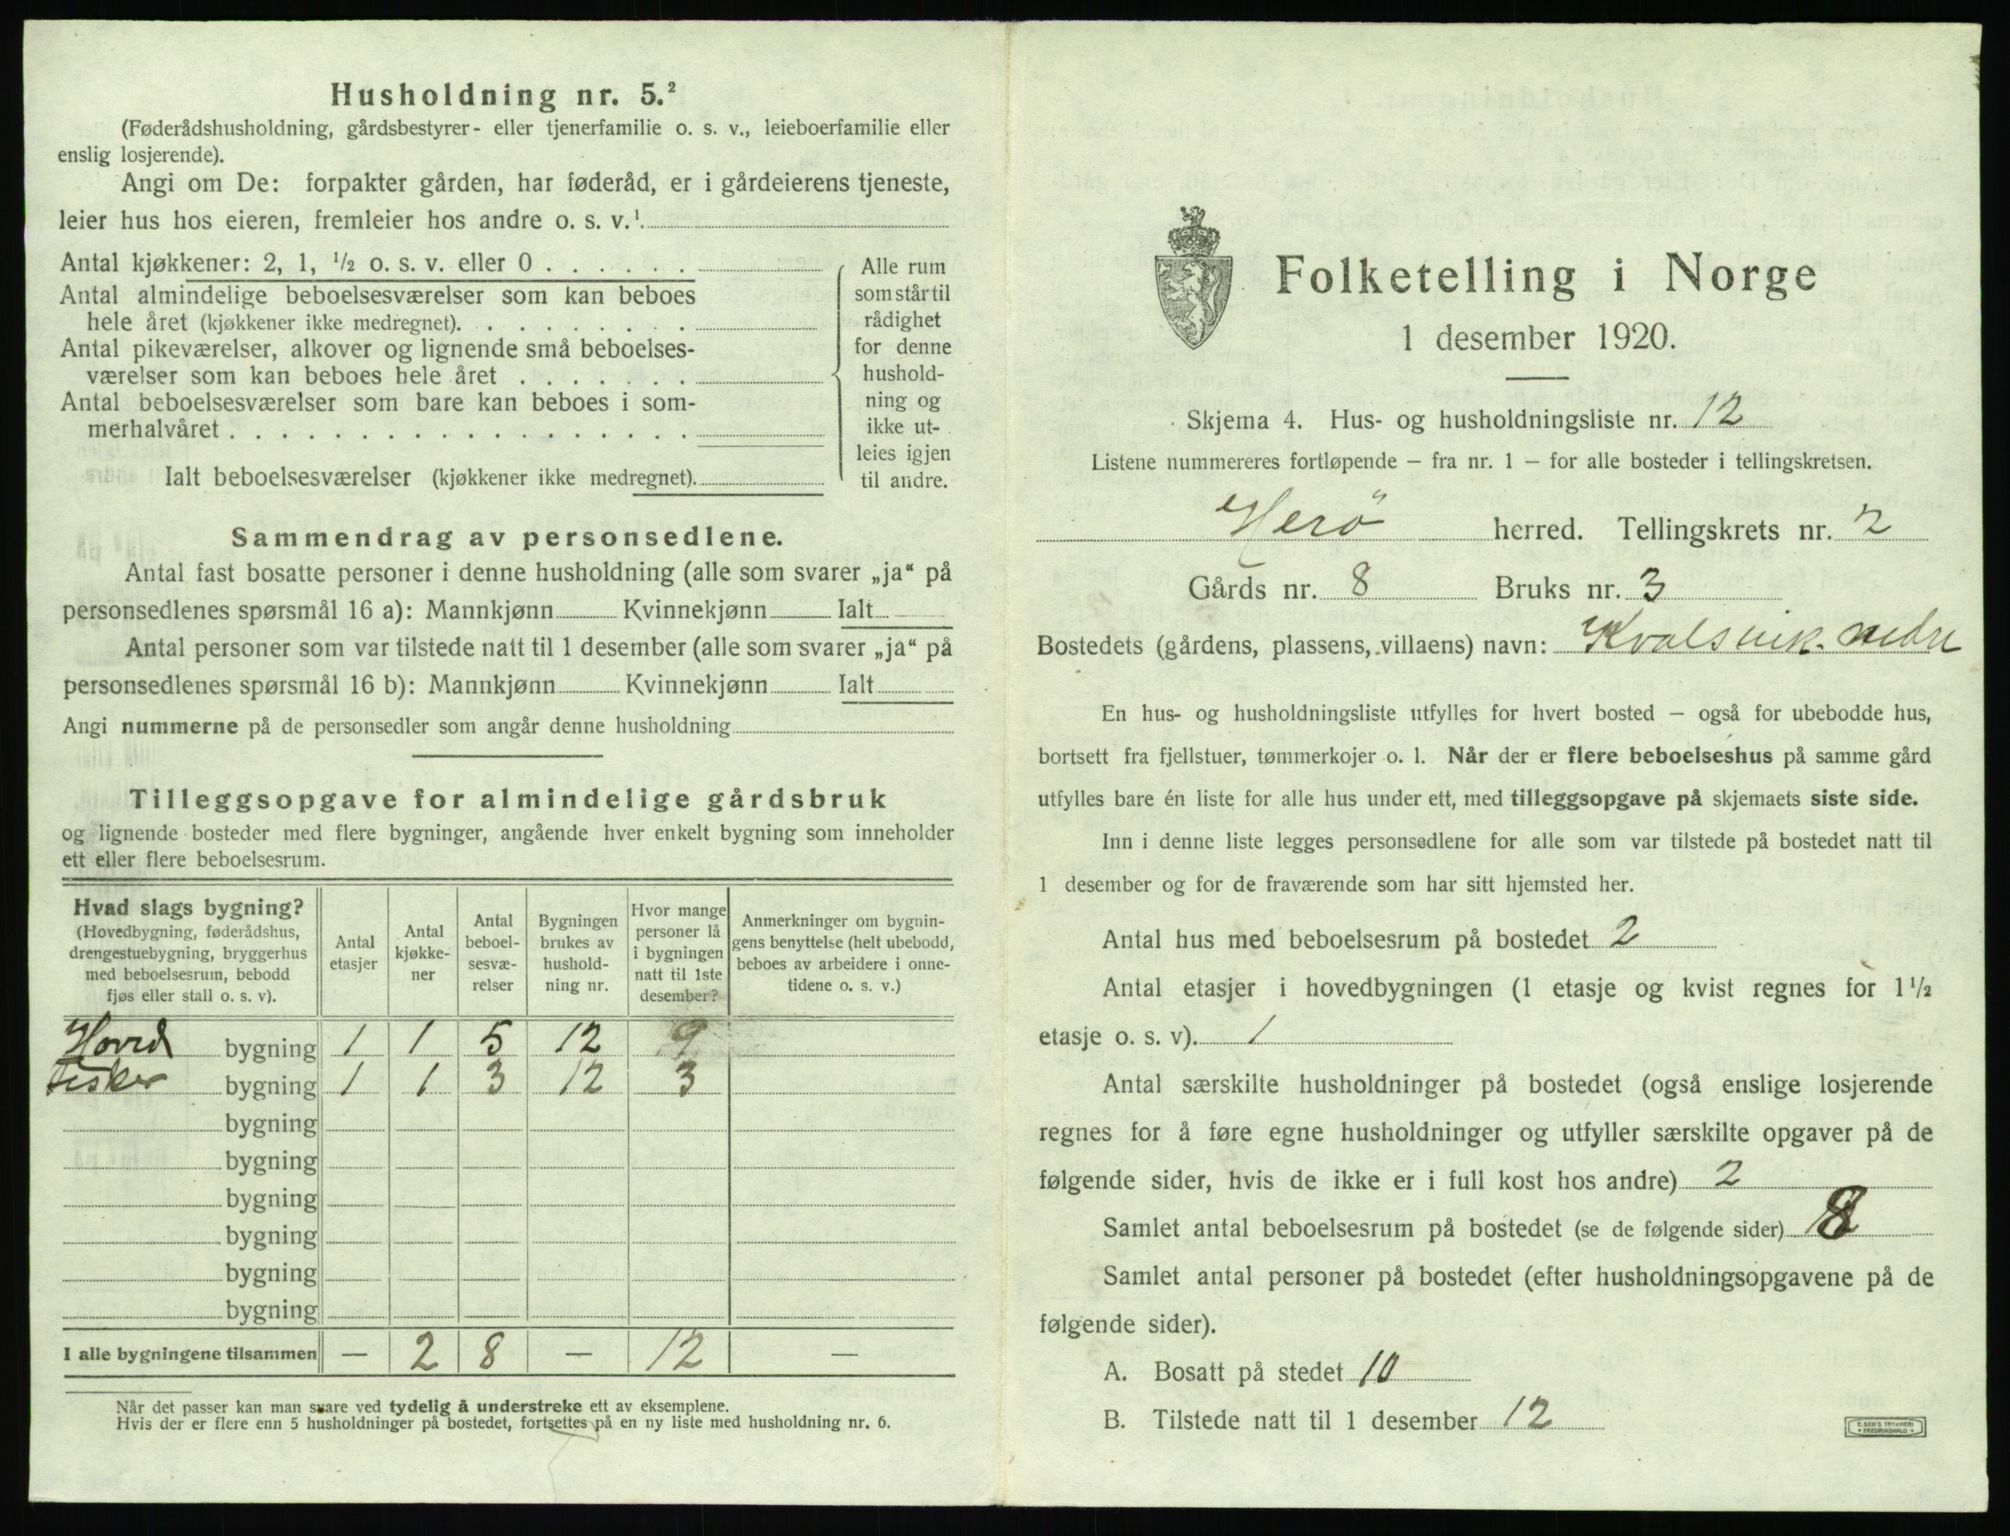 Husholdning nr. 5.²
(Føderådshusholdning, gårdsbestyrer- eller tjenerfamilie o. s. v., leieboerfamilie eller
enslig losjerende).
Angi om De: forpakter gården, har føderåd, er i gårdeierens tjeneste,
leier hus hos eieren, fremleier hos andre o. s. v.¹
Antal kjøkkener: 2, 1, ½ o. s. v. eller 0
Antal almindelige beboelsesværelser som kan beboes
hele året (kjøkkener ikke medregnet).
Antal pikeværelser, alkover og lignende små beboelses-
værelser som kan beboes hele året
Antal beboelsesværelser som bare kan beboes i som-
merhalvåret
Ialt beboelsesværelser (kjøkkener ikke medregnet).
Alle rum
som står til
rådighet
for denne
hushold-
ning og
ikke ut-
leies igjen
til andre.
Sammendrag av personsedlene.
Antal fast bosatte personer i denne husholdning (alle som svarer „ja“ på
personsedlenes spørsmål 16 a): Mannkjønn Kvinnekjønn Ialt
Antal personer som var tilstede natt til 1 desember (alle som svarer „ja“ på
personsedlenes spørsmål 16 b): Mannkjønn Kvinnekjønn Ialt
Angi nummerne på de personsedler som angår denne husholdning
Tilleggsopgave for almindelige gårdsbruk
og lignende bosteder med flere bygninger, angående hver enkelt bygning som inneholder
ett eller flere beboelsesrum.
Hvad slags bygning?
(Hovedbygning, føderådshus,
drengestuebygning, bryggerhus
med beboelsesrum, bebodd
fjøs eller stall o. s. v).
Antal
etasjer
Antal
kjøkke-
ner
Antal
beboel-
sesvæ-
relser
Bygningen
brukes av
hushold-
ning nr.
Hvor mange
personer lå
i bygningen
natt til 1ste
desember?
Anmerkninger om bygnin-
gens benyttelse (helt ubebodd,
beboes av arbeidere i onne-
tidene o. s. v.)
Hoved bygning 1 1 5 12 9
Fisker bygning 1 1 3 12 3
bygning
bygning
bygning
bygning
bygning
bygning
I alle bygningene tilsammen — 2 8 — 12 —
Når det passer kan man svare ved tydelig å understreke ett av eksemplene.
Hvis der er flere enn 5 husholdninger på bostedet, fortsettes på en ny liste med husholdning nr. 6.
Folketelling i Norge
1 desember 1920.
Skjema 4. Hus- og husholdningsliste nr. 12
Listene nummereres fortløpende — fra nr. 1 — for alle bosteder i tellingskretsen.
Herø herred. Tellingskrets nr. 2
Gårds nr. 8 Bruks nr. 3
Bostedets (gårdens, plassens, villaens) navn: Kvalsvik. nedre
En hus- og husholdningsliste utfylles for hvert bosted — også for ubebodde hus,
bortsett fra fjellstuer, tømmerkojer o. l. Når der er flere beboelseshus på samme gård
utfylles bare én liste for alle hus under ett, med tilleggsopgave på skjemaets siste side.
Inn i denne liste legges personsedlene for alle som var tilstede på bostedet natt til
1 desember og for de fraværende som har sitt hjemsted her.
Antal hus med beboelsesrum på bostedet 2
Antal etasjer i hovedbygningen (1 etasje og kvist regnes for 1½
etasje o. s. v). 1
Antal særskilte husholdninger på bostedet (også enslige losjerende
regnes for å føre egne husholdninger og utfyller særskilte opgaver på de
følgende sider, hvis de ikke er i full kost hos andre) 2
Samlet antal beboelsesrum på bostedet (se de følgende sider) 8
Samlet antal personer på bostedet (efter husholdningsopgavene på de
følgende sider).
A. Bosatt på stedet 10
B. Tilstede natt til 1 desember 12
E. SEM'S TRYKKERI
FREDRIKSHALD